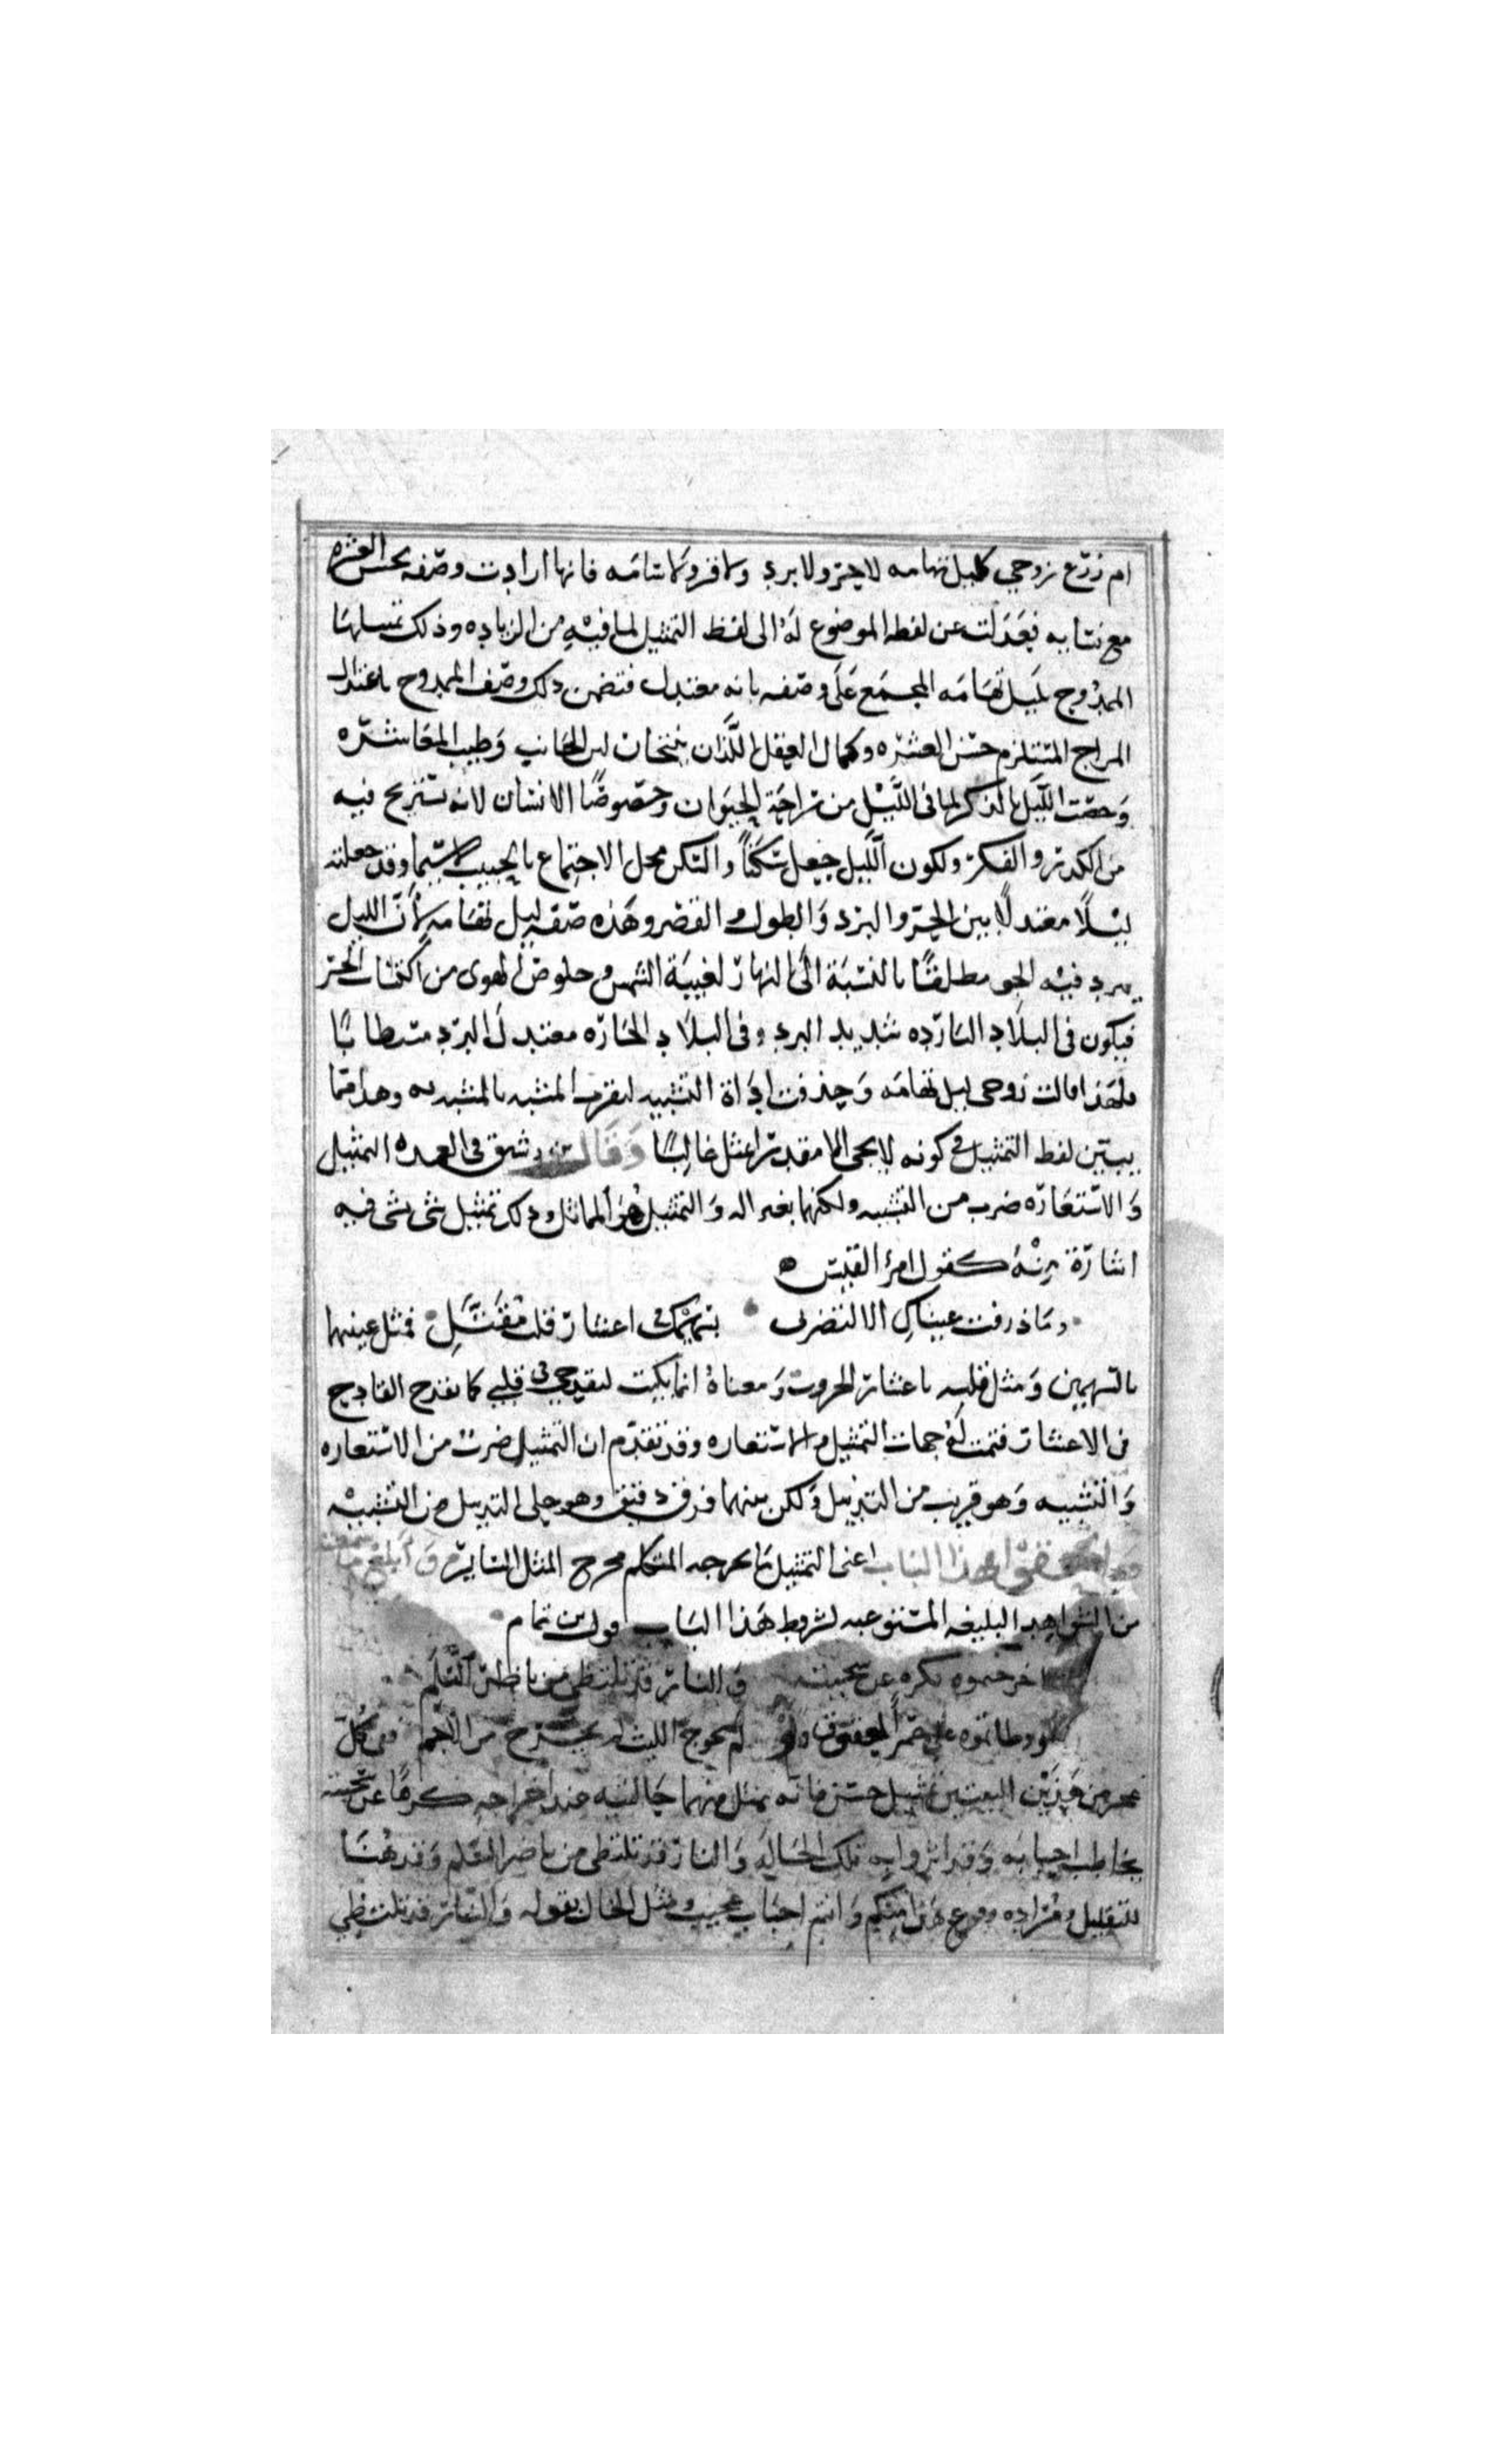 ام زرع زوجي كليل تهامه لا حر ولا برد ولا قر ولا سامه فانها ارادت وصفه بحسن العشره
مع نسايه فعدلت عن لفظه الموضوع له الى لفظ التمثيل لما فيه من الزياده وذلك تمثيلها
الممدوح بليل تهامه المجمع على وصفه بانه معتدل فتضمن ذلك وصف الممدوح باعتدال
المزاج المستلزم حسن العشره وكمال العقل اللذان ينتجان لين الجانب وطيب المعاشره
وخصت الليل بالذكر لما في الليل من راحة الحيوان وخصوصًا الانسان لانه يستريح فيه
من الكد والفكر ولكون الليل جعل سكنًا والسكن محل الاجتماع بالحبيب لا سيما وقد جعلته
ليلًا معتدلًا بين الحر والبرد والطول والقصر وهذه صفة ليل تهامه لأن الليل
يبرد فيه الجو مطلقًا بالنسبة الى النهار لغيبة الشمس وخلوص الهوى من اكتساب الحر
فيكون في البلاد البارده شديد البرد وفي البلاد الحاره معتدل البرد مستطابًا
فلهذا قالت زوجي ليل تهامه وحذفت اداة التشبيه لتقرب المشبه بالمشبه به وهذا مما
يبين لفظ التمثيل في كونه لا يجي الا مقدرا بمثل غالبًا وقال بن رشيق في العمده التمثيل
والاستعاره ضرب من التشبيه ولكنها بغير اله والتمثيل هو المماثل وذلك تمثيل شي بشي فيه
اشارة منه كقول امرؤ القيس
وما ذرفت عيناكِ الا لتضربي بسهميك في اعشار قلب مقتلِ فمثل عينيها
بالسهمين ومثل قلبه باعشار الجزور ومعناه انما بكيت لتقدحي في قلبي كما يقدح القادح
في الاعشار فتمت له جهات التمثيل والاستعاره وقد تقدم ان التمثيل ضرب من الاستعاره
والتشبيه وهو قريب من التذييل ولكن بينهما فرق دقيق وهو خلو التذييل من التشبيه
هذا الباب اعني التمثيل ما يخرجه المتكلم مخرج المثل الساير وابلغ ما سمعت
من الشواهد البليغه المستوعبه لشروط هذا الباب قول بن تمام
اخرجتموه بكره عن سجيته والنار قد تلتظي من ناظر السلم
اوطاتموه على جمر العقوق ولو لم يحرج الليث لم يخرج من الاجم ففي كل
عجز من هذين البيتين تمثيل حسن فانه مثل منهما حالتيه عند اخراجه كرهًا عن سجيته
يخاطب احبابه والنار قد تلتظي من ناضر السلم وقد هنا
للتقليل ومراده وقوع هذا منكم وانتم احباب عجيب ومثل الحال بقوله والنار قد تلتظي